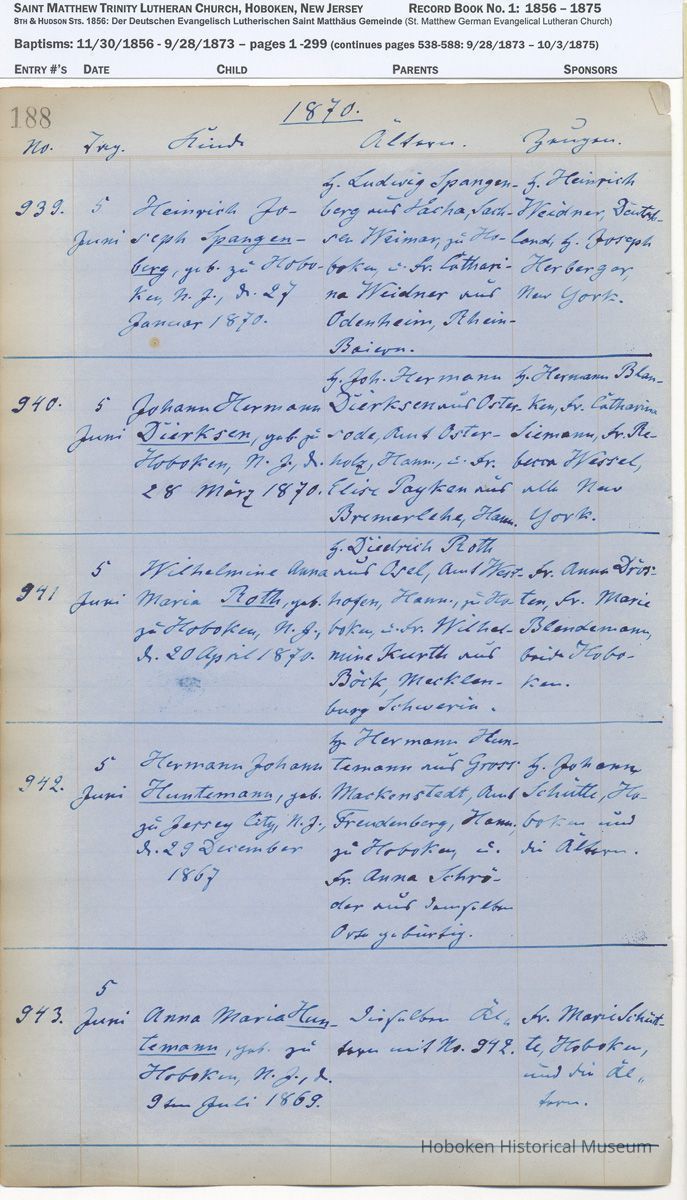 SAINT MATTHEW TRINITY LUTHERAN CHURCH, HOBOKEN, NEW JERSEY RECORD BOOK NO. 1: 1856 – 1875
8TH & HUDSON STS. 1856: Der Deutschen Evangelisch Lutherischen Saint Matthäus Gemeinde (St. Matthew German Evangelical Lutheran Church)
Baptisms: 11/30/1856 - 9/28/1873 – pages 1 -299 (continues pages 538-588: 9/28/1873 – 10/3/1875)
ENTRY #'S DATE CHILD PARENTS SPONSORS
188
1870.
No. Tag. Kind Ältern. Zeugen.
939.
5
Juni
Heinrich Jo-
seph Spangen-
berg, geb. zu Hobo-
ken, N. J., d. 27
Januar 1870.
H. Ludwig Spangen-
berg aus Vacha, Sach-
sen Weimar, zu Ho-
boken, u. Fr. Cathari-
na Weidner aus
Odenheim, Rhein-
Baiern.
H. Heinrich
Weidner, Deutsch-
land, H. Joseph
Herberger,
New York.
940.
5
Juni
Johann Hermann
Dierksen, geb. zu
Hoboken, N. J., d.
28 März 1870.
H. Joh. Hermann
Dierksen aus Oster-
sode, Amt Oster-
holz, Hann., u. Fr.
Elise Tayken aus
Bremerlehe, Hann.
H. Hermann Blan-
ken, Fr. Catharina
Siemann, Fr. Re-
becca Wessel,
alle New
York.
941
5
Juni
Wilhelmine Anna
Maria Roth, geb.
zu Hoboken, N. J.,
d. 20 April 1870.
H. Diedrich Roth
aus Osel, Amt West-
hofen, Hann., zu Ho-
boken, u. Fr. Wilhel-
mine Kurth aus
Böck, Mecklen-
burg Schwerin.
Fr. Anna Dros-
ten, Fr. Marie
Blendemann,
beide Hobo-
ken.
942.
5
Juni
Hermann Johann
Huntemann, geb.
zu Jersey City, N. J.,
d. 29 December
1867
H. Hermann Hun-
temann aus Gross-
Mackenstedt, Amt
Freudenberg, Hann.,
zu Hoboken, u.
Fr. Anna Schrö-
der aus demselben
Orte gebürtig.
H. Johann
Schütte, Ho-
boken und
die Ältern.
943.
5
Juni
Anna Maria Hun-
temann, geb. zu
Hoboken, N. J., d.
9ten Juli 1869.
Dieselben Äl-
tern mit No. 942.
Fr. Marie Schüt-
te, Hoboken,
und die Äl-
tern.
Hoboken Historical Museum